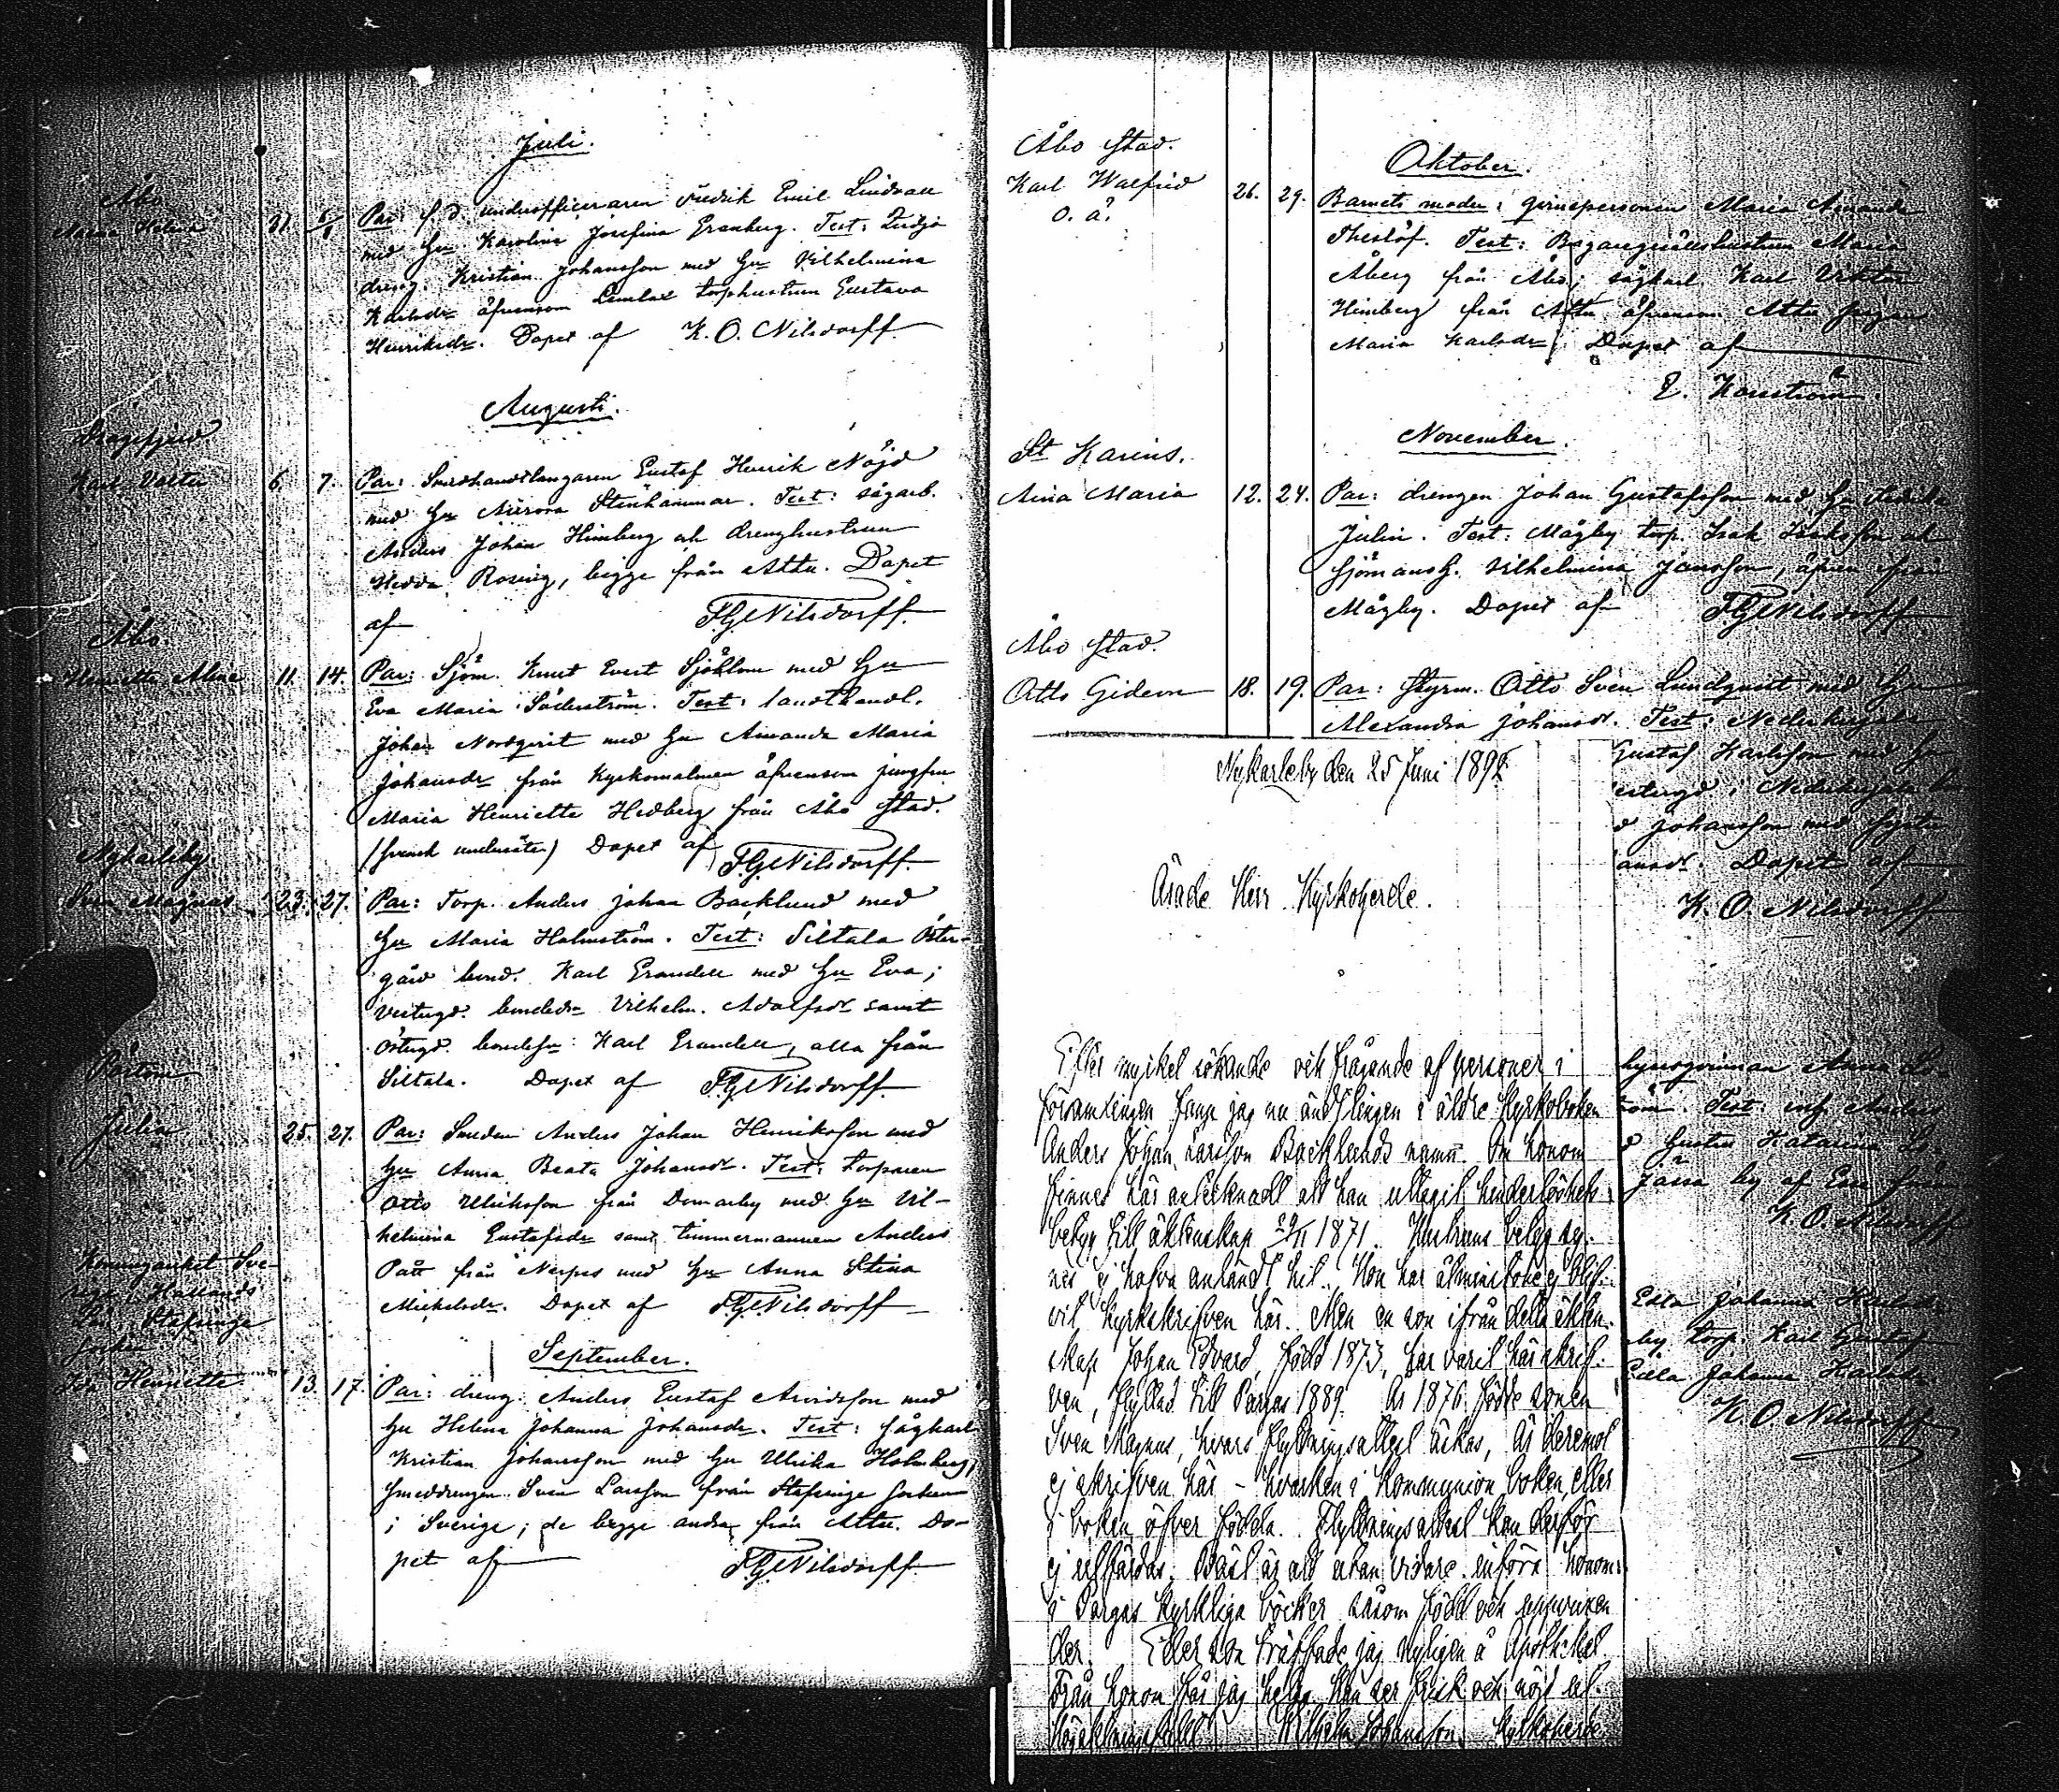 Juli.
Åbo
Helena 31.
Par: f. d. underofficeraren Fredrik Emil Lindvall
med Hu Karolina Josefina Granberg. Test:
dreng. Kristian Johansson med Hu Vilhelmina
Karlsdr äfvensom Lemlax torphustrun Gustava
Henriksdr. Döpet af K. O. Nilsdorff.
Augusti.
Dragsfjerd
Karl Valter 6. 7. Par: Smedhandtlangaren Gustaf Henrik Nöjd
med Hu Aurora Stenhammar. Test: sågarb.
Anders Johan Himberg och drenghustrun
Hedda Rosing, begge från Attu. Döpet
af F.G. Nilsdorff.
Åbo.
Henriette Alina 11. 14. Par: Sjöm. Knut Evert Sjöblom med Hu
Eva Maria Söderström. Test: landthandl.
Johan Nordqvist med Hu Amanda Maria
Johansdr från Kyrkomalmen äfvensom jungfru
Maria Henriette Hedberg från Åbo stad.
(svensk undersåte) Döpet af F.G. Nilsdorff.
Nykarleby.
Sven Magnus 23. 27. Par: Torp. Anders Johan Backlund med
Hu Maria Holmström. Test: Siltala Öster-
gård bond. Karl Grandell med Hu Eva;
Vestergd. bondedr Vilhelm. Adolfsdr samt
Östergd. bondeso: Karl Grandell, alla från
Siltala. Döpet af F.G. Nilsdorff.
Pörtom
Julia 25. 27. Par: Smeden Anders Johan Henriksson med
Hu Anna Beata Johansdr. Test: torparen
Otto Ulriksson från Domarby med Hu Vil-
helmina Gustafsdr samt timmermannen Anders
Pått från Nerpes med Hu Anna Stina
Mickelsdr. Döpet af F.G. Nilsdorff
September.
Konungariket Sve-
rige, Hallands
Län, Stafsinge
socken
Henriette 13. 17. Par: dreng. Anders Gustaf Arvidsson med
Hu Helena Johanna Johansdr. Test: sågkarl
Kristian Johansson med Hu Ulrika Holmberg,
smeddrengen Sven Larsson från Stafsinge socken
i Sverige; de begge andra från Attu. Dö-
pet af F.G. Nilsdorff
Åbo stad.
Oktober.
Karl Walfrid 26. 29. Barnets moder: qvinspersonen Maria Amanda
o. ä.
Theslöf. Test: Maria
Åberg från Åbo; sågkarl Karl Viktor
Himberg från Attu äfvensom Attu pigan
Maria Karlsdr. Döpet af
November.
St Karins.
Aina Maria 12. 24. Par: drengen Johan Gustafsson med Hu Fredrika
Julin. Test: Mågby torp. Isak Isaksson och
Sjömansh. Vilhelmina Jansson, äfven ifrån
Mågby. Döpet af F.G. Nilsdorff
Åbo stad.
Otto Gideon 18. 19. Par: Styrm. Otto Sven Lundqvist med Hu
Alexandra Johansdr. Test: Nederkirjala
Gustaf Karlsson med
i Nederkirjala
Johansson med
Döpet af
K. O. Nilsdorff
Nykarleby den 25 Juni 1892
Ärade Herr Kyrkoherde.
Efter myckel sökande och frågande af personer i
församlingen fann jag nu ändtlingen i äldre Kyrkoboken
Anders Johan Larsson Backlunds namn. Om honom
finnes här antecknadt att han uttagit hinderlöshets
betyg till äktenskap 29/ 1871. Hustruns betyg sy-
nes ej hafva anländt hit. Hon har åtminstone ej blif-
vit kyrkskrifven här. Men en son ifrån detta äkten-
skap Johan Edvard, född 1873, har varit här skrif-
ven, flyttad till Pargas 1889. År 1876 födde sonen
Sven Magnus, hvars flyttningsattest äskas, är deremot
ej skrifven här - hvarken i Kommunion boken, eller
i boken öfver födda. Flyttningsattest kan derför
ej utfärdas. Bäst är att utan vidare införa honom
i Pargas kyrkliga böcker såsom född och uppvuxen
der. Eder son träffade jag nyligen å Apotheket.
Från honom får jag helsa. Han ser frisk och nöjd ut.
Högaktningsfullt Wilhelm Johansson, Kyrkoherde
Anna
Test: inh. Anders
Hustru Katarina
by af
K. O. Nilsdorff
Edla Johanna
torp. Karl Gustaf
Edla Johanna Karlsdr.
K. O. Nilsdorff